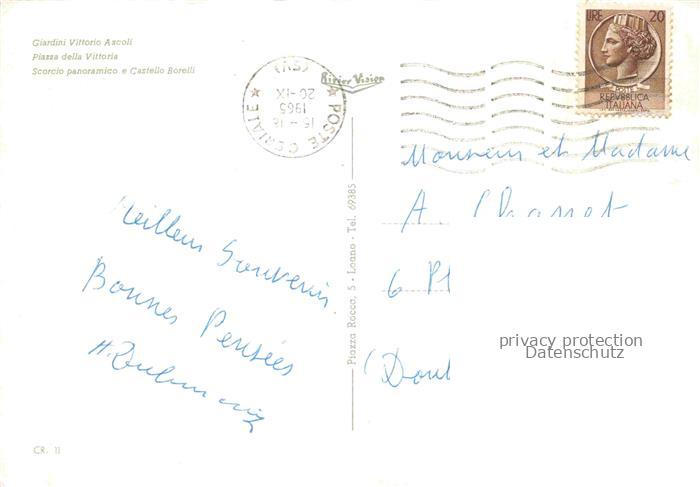 Giardini Vittorio Ascoli
Piazza della Vittoria
Scorcio panoramico e Castello Borelli
LIRE 20
POSTE
REPVBBLICA
ITALIANA
POSTE CERIALE
(SV)
20-IX
1965
15-16
River Vision
Piazza Rocca, 5 - Loano - Tel. 69385
Meilleur Souvenir
Bonnes Pensées
Monsieur et Madame
A.
6 Pl
privacy protection
Datenschutz
CR. 11